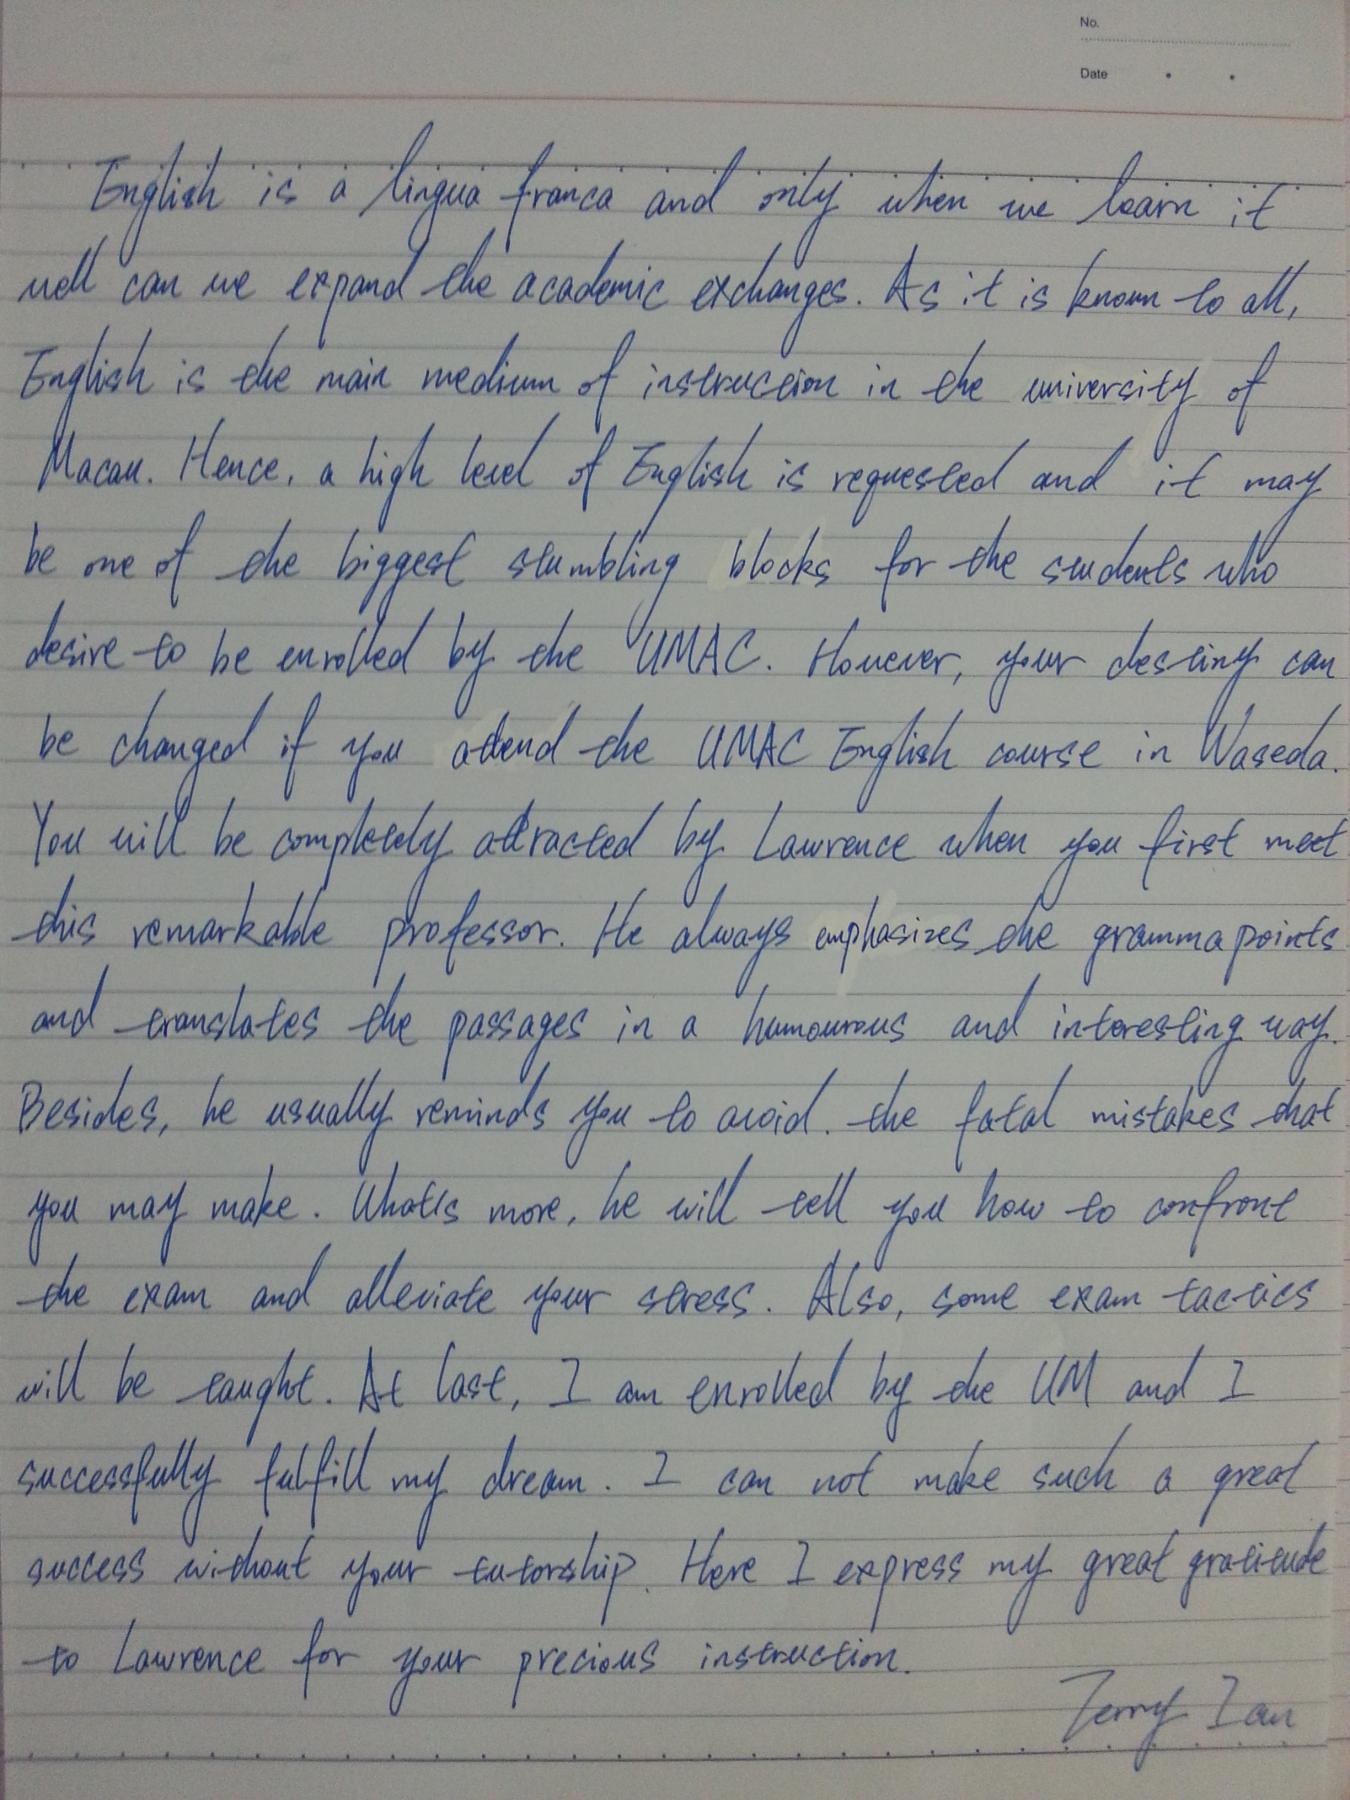 No.
Date
English is a lingua franca and only when we learn it
well can we expand the academic exchanges. As it is known to all,
English is the main medium of instruction in the university of
Macau. Hence, a high level of English is requested and it may
be one of the biggest stumbling blocks for the students who
desire to be enrolled by the UMAC. However, your destiny can
be changed if you attend the UMAC English course in Waseda.
You will be completely attracted by Lawrence when you first meet
this remarkable professor. He always emphasizes the gramma points
and translates the passages in a humourous and interesting way.
Besides, he usually reminds you to avoid. the fatal mistakes that
you may make. What's more, he will tell you how to confront
the exam and alleviate your stress. Also, some exam tactics
will be taught. At last, I am enrolled by the UM and I
successfully fulfill my dream. I can not make such a great
success without your tutorship. Here I express my great gratitude
to Lawrence for your precious instruction.
Terry Ian